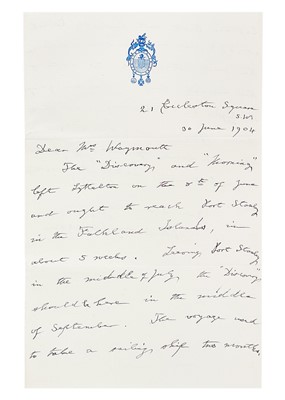 21 Eccleston Square
S.W.
30 June 1904
Dear Mrs Waymouth
The "Discovery" and "Morning"
left Lyttelton on the 8th of June
and ought to reach Port Stanley
in the Falkland Islands, in
about 5 weeks. Leaving Port Stanley
in the middle of July, the "Discovery"
should be here in the middle
of September. The voyage used
to take a sailing ship two months,